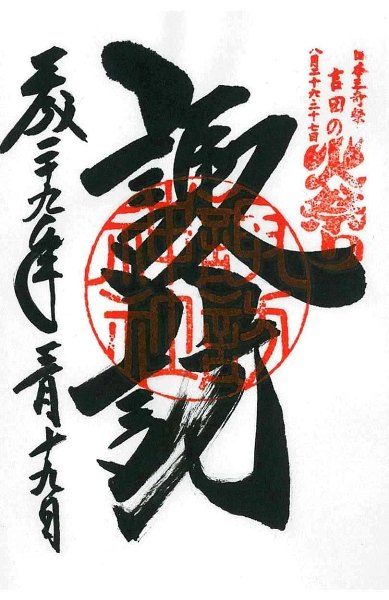 日本三奇祭
吉田の火祭り
八月二十六・二十七日
諏訪
平成二十九年三月十九日